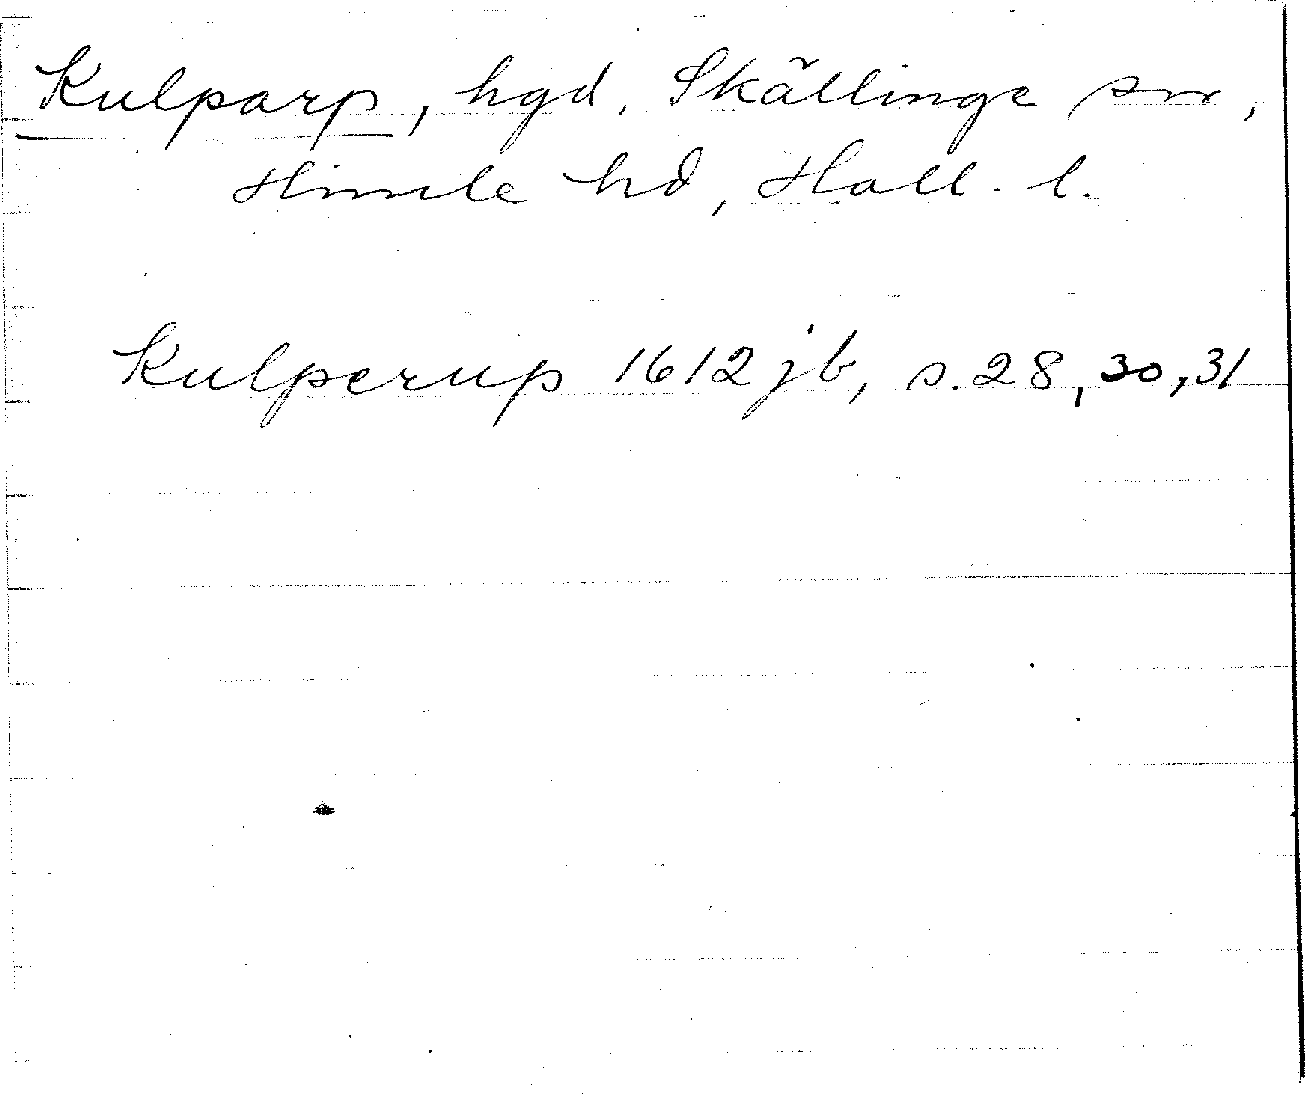 Kulparp, hgd, Skällinge sn,
Himle hd, Hall. l.
Kulperup 1612 jb, s. 28, 30, 31